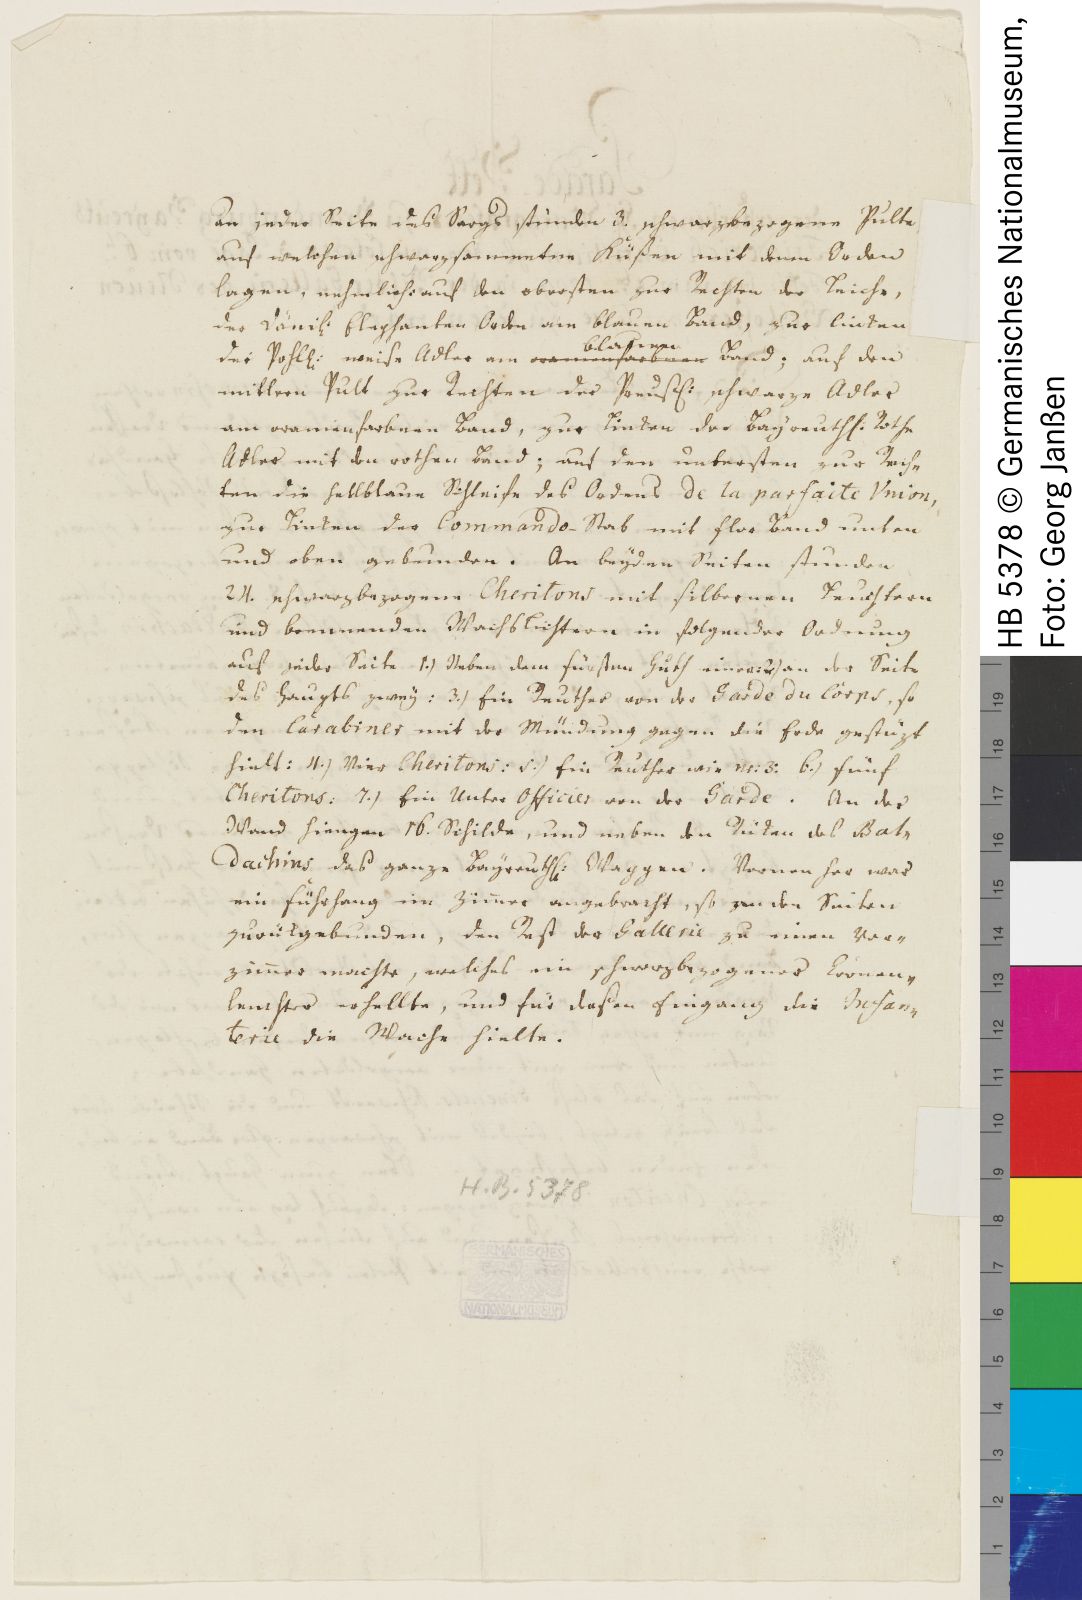 an jeder Seite des Sargs stunden 3. schwarzbezogene Pulte
auf welchen schwarzsammetne Küßen mit denen Orden
lagen, nehmlich: auf den obersten zur Rechten der Leiche,
der Dänis: Elephanten Orden am blauen Band, zur linken
der Pohl: weise Adler am oranienfarbnen Band; auf den
blauen
mittlern Pult zur Rechten der Preuss: schwarze Adler
am oranienfarbnen Band, zur Linken der Bayreuth: Rothe
Adler mit den rothen Band; auf den untersten zur Rech
ten die hellblaue Schleife des Ordens de la parfaite Vnion,
zur Linken der Commando-Stab mit flor Band unten
und oben gebunden. An beyden Seiten stunden
24. schwarzbezogene Cheritons mit silbernen Leuchtern
und brennenden Wachslichtern in folgender Ordnung
auf jeder Seite 1.) Neben dem fürsten Huth einer: 2.) an der Seite
des Haupts zwey: 3.) Ein Reuther von der Garde du Corps, so
den Carabiner mit der Mündung gegen die Erde gestüzt
hielt: 4.) Vier Cheritons: 5.) Ein Reuther wie nr: 3. 6.) fünf
Cheritons: 7.) Ein Unter Officier von der Garde. An der
Wand hiengen 16. Schilde, und neben den Rüken des Bal-
dachins das ganze Bayreuth: Wappen. Vornen her war
ein Fürhang im Zimmer angebracht, so an den Seiten
zurükgebunden, den Rest der Gallerie zu einen Vor-
zimmer machte, welches ein schwarzbezogener Cronen-
leuchter erhellte, und für deßen Eingang die Infan-
terie die Wache hielte.
H.B. 5378
GERMANISCHES
NATIONALMUSEUM
HB 5378 © Germanisches Nationalmuseum,
Foto: Georg Janßen
19
18
17
16
15
14
13
12
11
10
9
8
7
6
5
4
3
2
1